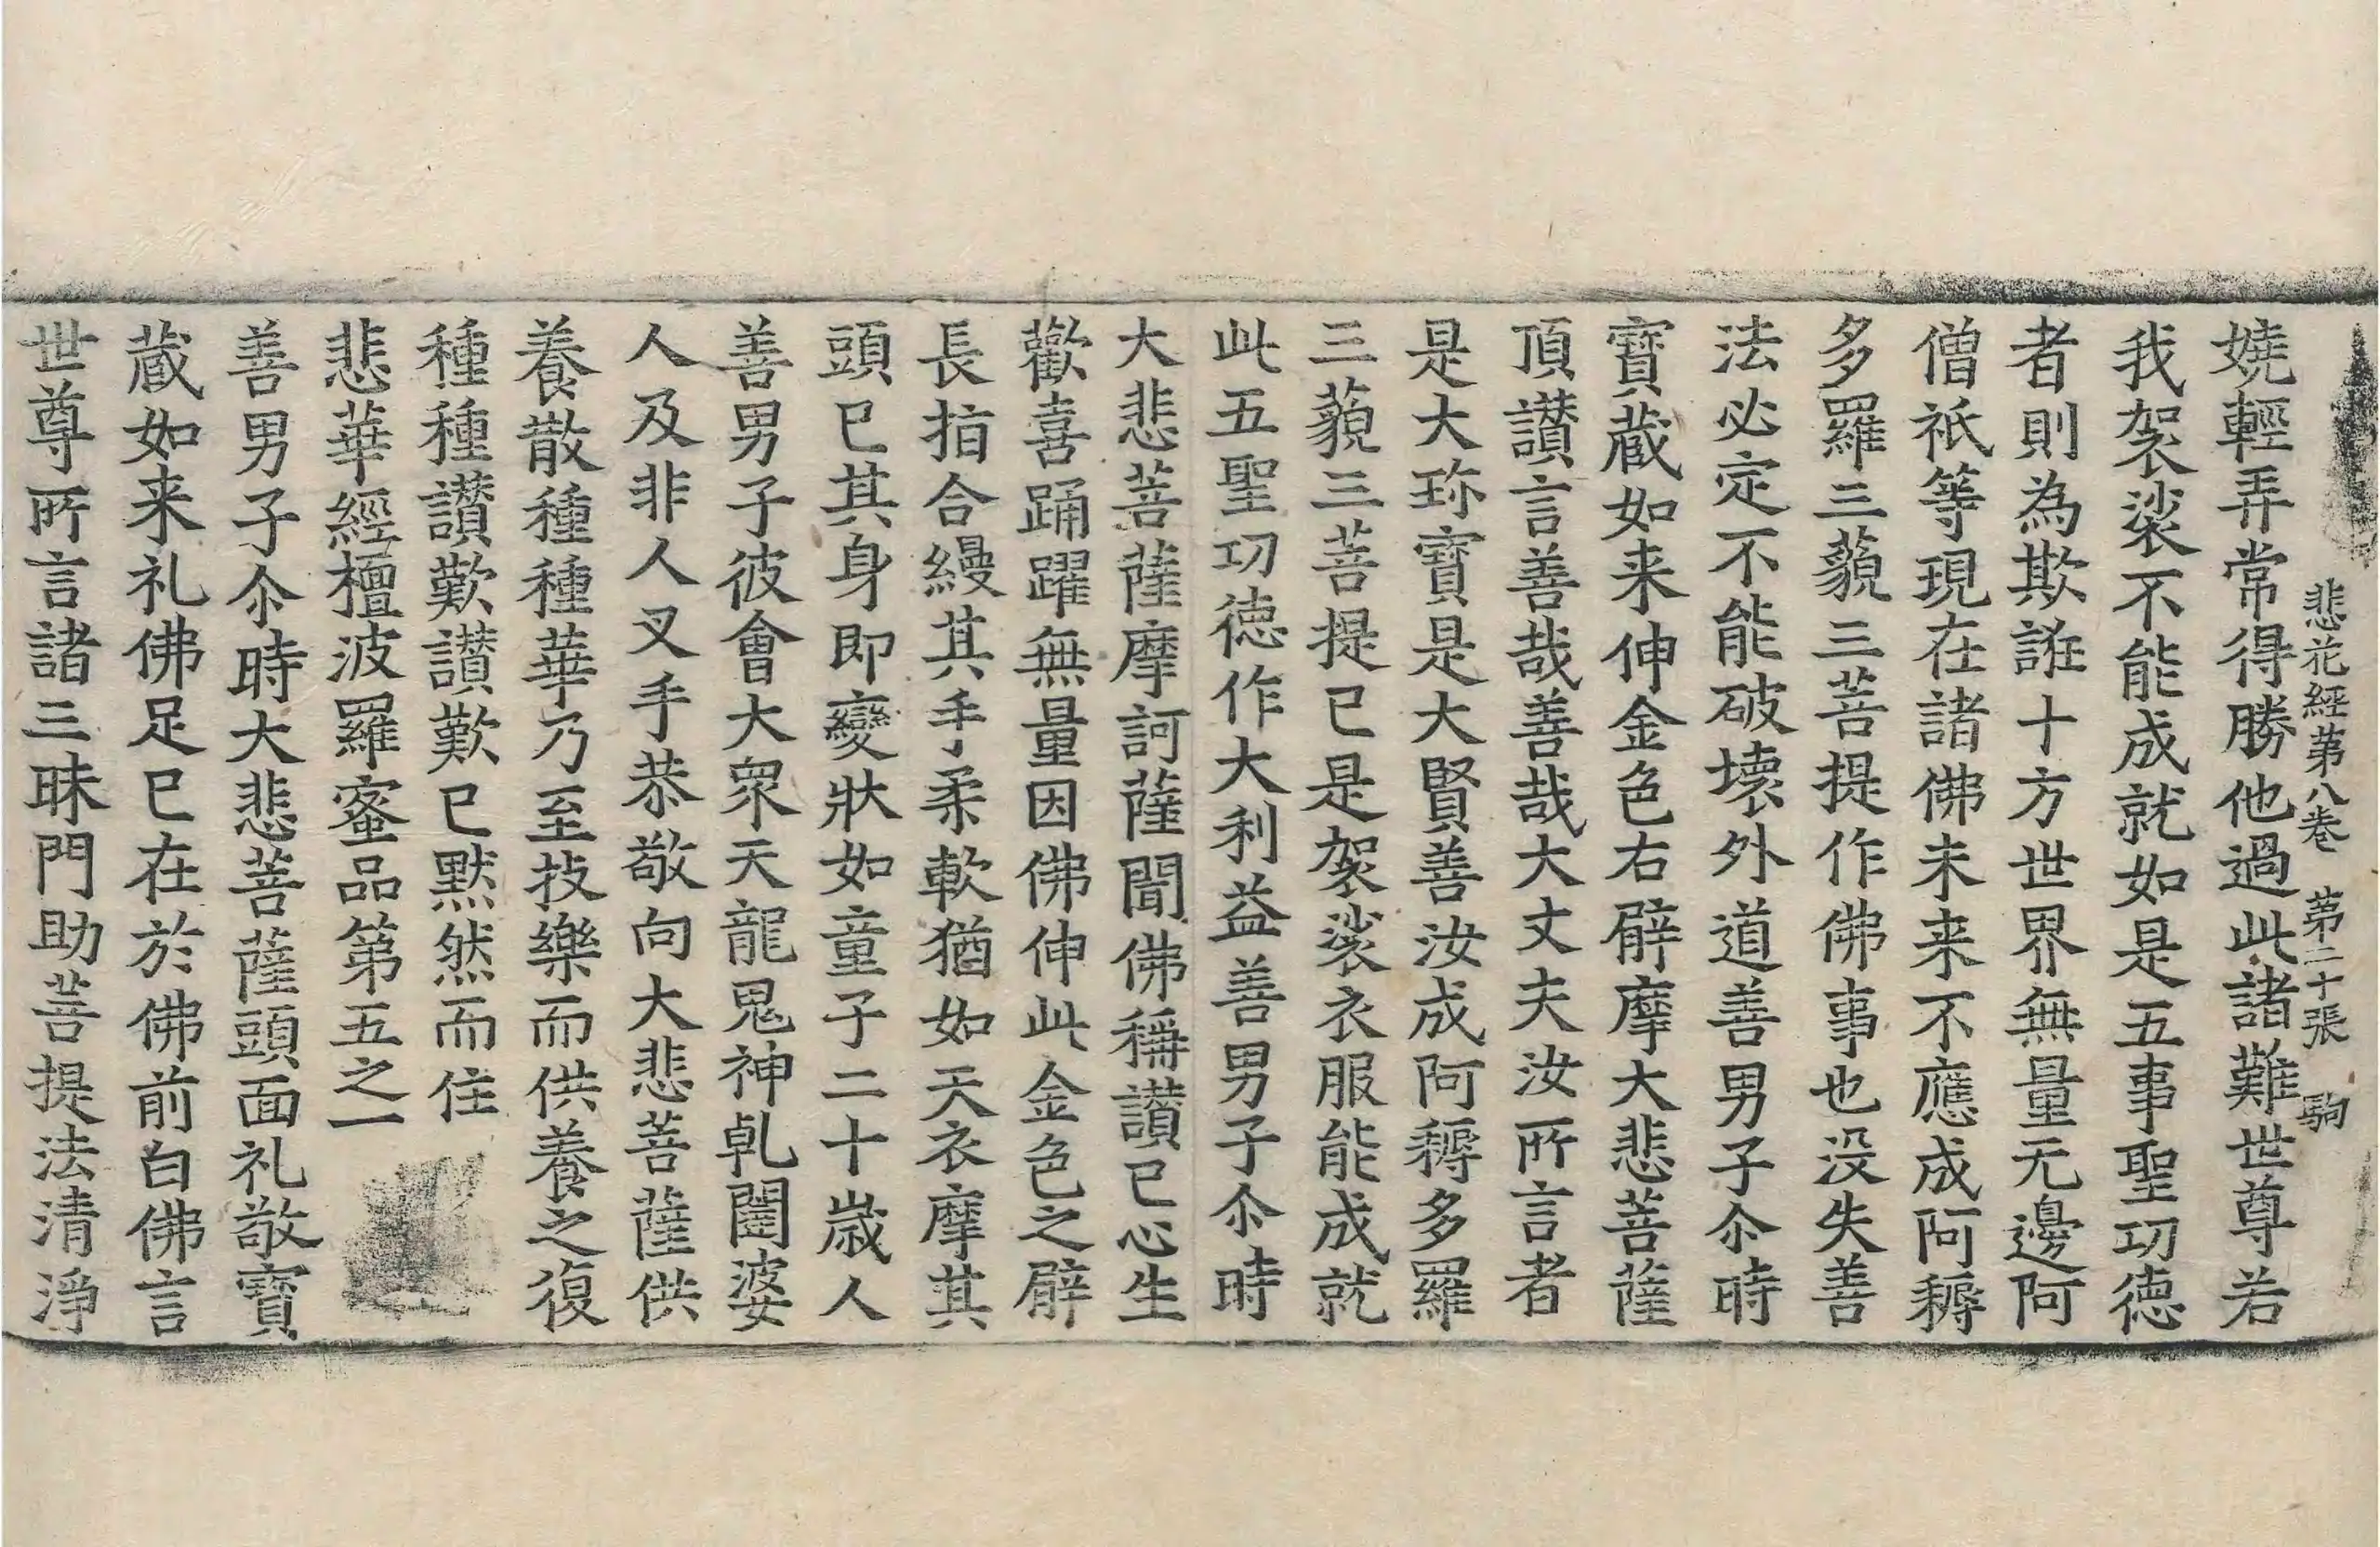 悲花經苐八卷 苐二十張 駒
嬈輕弄常得勝他過此諸難世尊若
我袈裟不能成就如是五事聖㓛徳
者則為欺誑十方世界無量无邊阿
僧祇等現在諸佛未来不應成阿耨
多羅三藐三菩提作佛事也没失善
法必定不能破壊外道善男子尒時
寳蔵如来伸金色右臂摩大悲菩薩
頂讃言善哉善哉大丈夫汝所言者
是大珎寳是大賢善汝成阿耨多羅
三藐三菩提已是袈裟衣服能成就
此五聖㓛徳作大利益善男子尒時
大悲菩薩摩訶薩聞佛稱讃已心生
歡喜踊躍無量因佛伸此金色之臂
長指合縵其手柔軟猶如天衣摩其
頭已其身即變狀如童子二十歳人
善男子彼會大衆天龍鬼神乹闥婆
人及非人叉手恭敬向大悲菩薩供
養散種種華乃至技樂而供養之復
種種讃歎讃歎已黙然而住
悲華經檀波羅蜜品第五之一
善男子尒時大悲菩薩頭面礼敬寳
蔵如来礼佛足已在於佛前白佛言
世尊所言諸三昧門助菩提法清淨